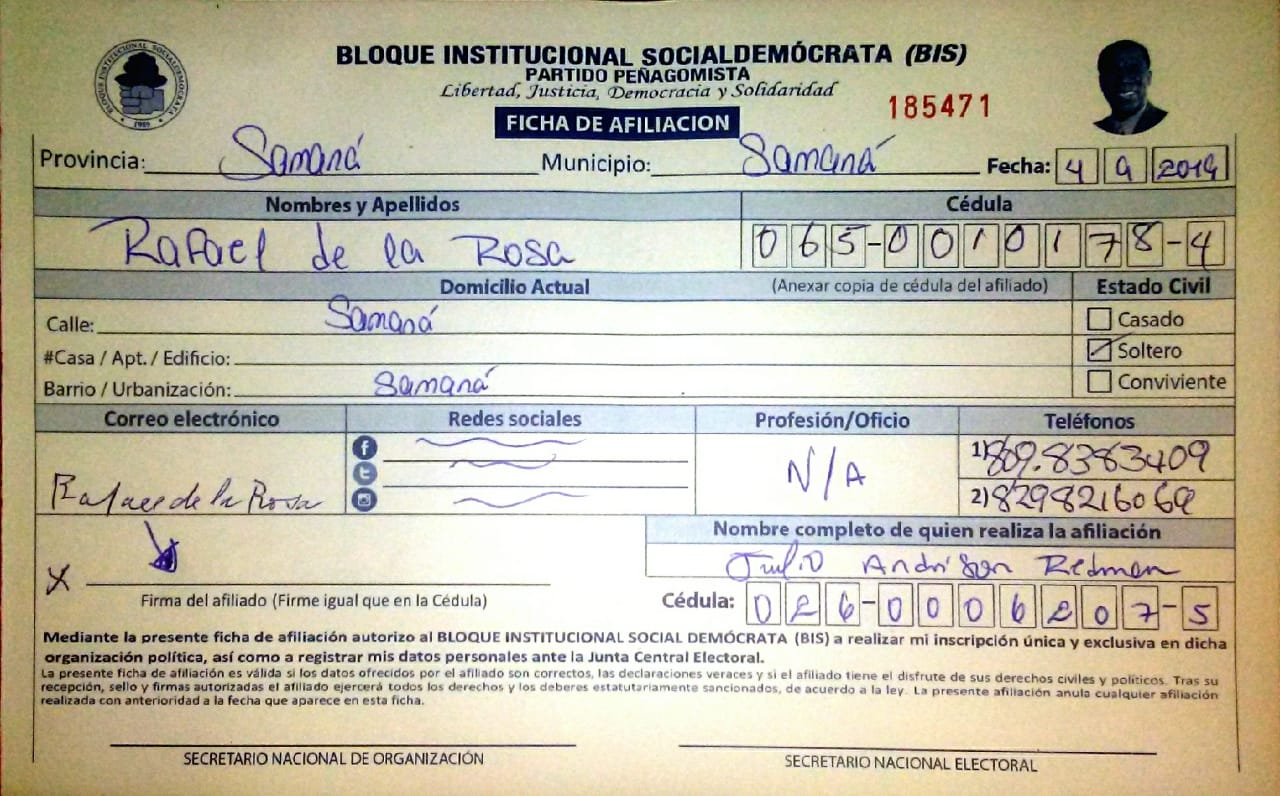 BLOQUE INSTITUCIONAL SOCIALDEMÓCRATA (BIS)
PARTIDO PEÑAGOMISTA
Libertad, Justicia, Democracia y Solidaridad
BLOQUE INSTITUCIONAL SOCIALDEMOCRATA
1989
185471
FICHA DE AFILIACION
Provincia: Samaná Municipio: Samaná Fecha: 4 9 2019
Nombres y Apellidos Cédula
Rafael de la Rosa 065-0010178-4
Domicilio Actual (Anexar copia de cédula del afiliado) Estado Civil
Calle: Samaná Casado
#Casa / Apt. / Edificio: Soltero
Barrio / Urbanización: Samaná Conviviente
Correo electrónico Redes sociales Profesión/Oficio Teléfonos
N/A 1) 809.8383409
Rafael de la Rosa 2) 8298216069
Nombre completo de quien realiza la afiliación
Julio Andrison Redman
X
Firma del afiliado (Firme igual que en la Cédula) Cédula: 026-0006207-5
Mediante la presente ficha de afiliación autorizo al BLOQUE INSTITUCIONAL SOCIAL DEMÓCRATA (BIS) a realizar mi inscripción única y exclusiva en dicha
organización política, así como a registrar mis datos personales ante la Junta Central Electoral.
La presente ficha de afiliación es válida si los datos ofrecidos por el afiliado son correctos, las declaraciones veraces y si el afiliado tiene el disfrute de sus derechos civiles y políticos. Tras su
recepción, sello y firmas autorizadas el afiliado ejercerá todos los derechos y los deberes estatutariamente sancionados, de acuerdo a la ley. La presente afiliación anula cualquier afiliación
realizada con anterioridad a la fecha que aparece en esta ficha.
SECRETARIO NACIONAL DE ORGANIZACIÓN SECRETARIO NACIONAL ELECTORAL